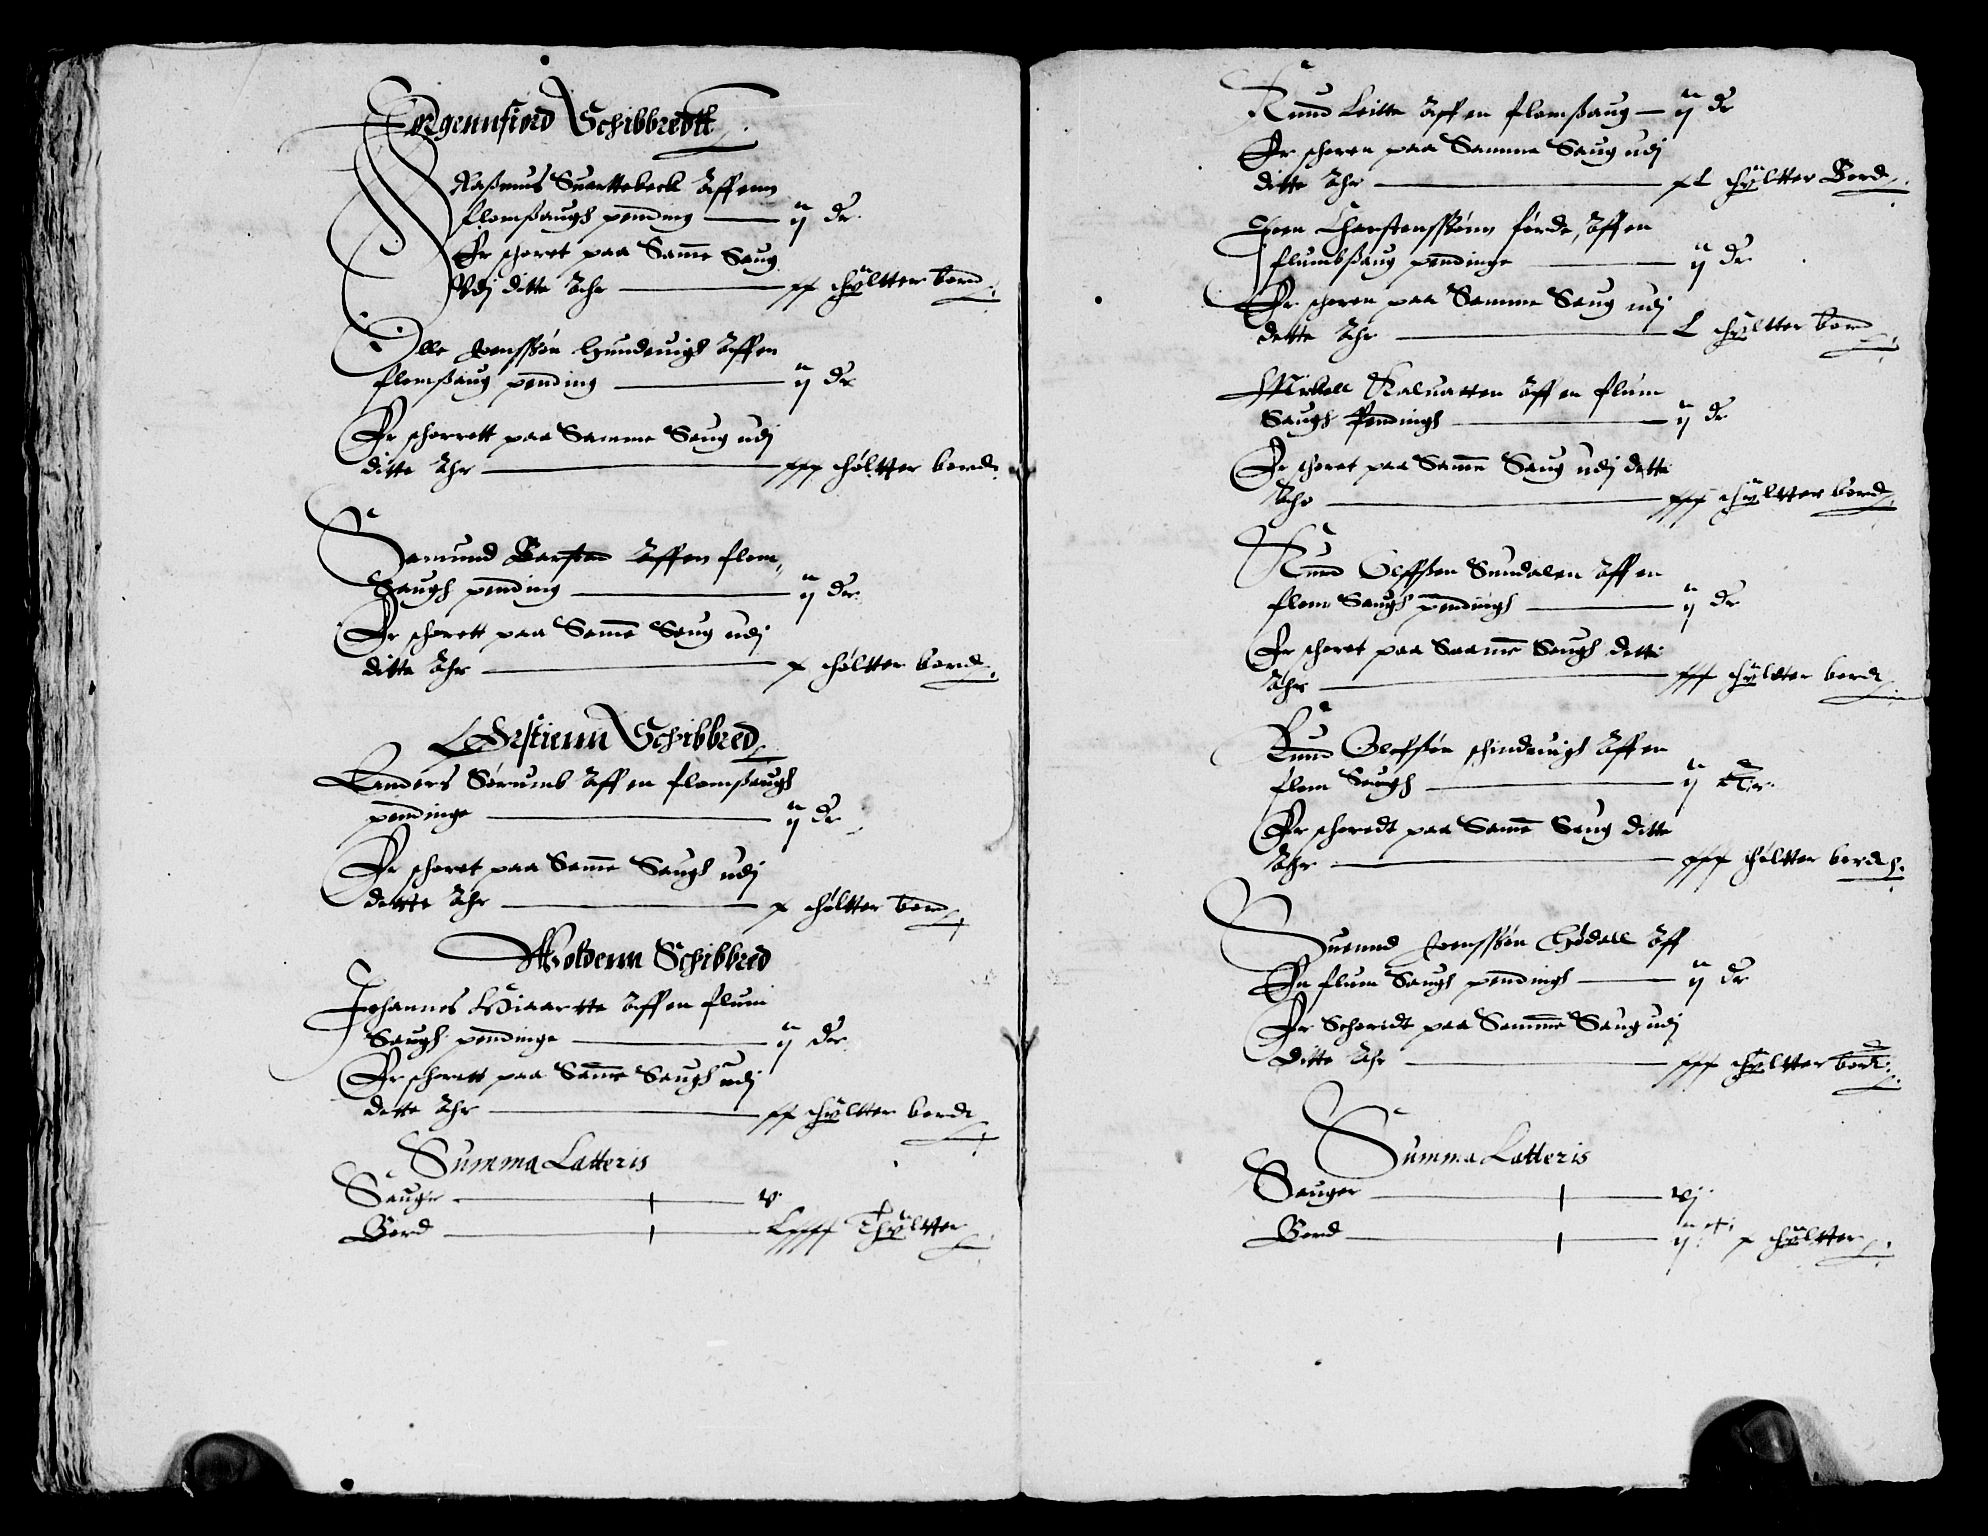 Ørgennfiord Schibbredtt
Raßmus Suarttebeck Aff enn
flomßaugh pending — ij dr.
Er schoret paa Samme Saug
Vdj ditte Ahr — xx thÿltter bord
Olle Jonssøn Hundeuigh Aff en
flomßaug pending — ij dr
Er schorrett paa Samme Saug udj
ditte Ahr — xxx thøltter bordt
Samund Barstad Aff en flom,
Saugh pending — ij dr
Er schorett paa Samme Saug udj
ditte Ahr — x thøltter bord
Ørstienn Schibbred
Anders Sørumb Aff en flomßaugh
pendinge — ij dr
Er schoret paa Samme Saugh udj
dette Ahr — x thøltter bord
Woldenn Schibbred
Johannes Hiaartte Aff en flum
Saugh pendinge — ij dr
Er schorett paa Samme Saugh udj
dette Ahr — xx thÿltter bordt
Summa Latteris
Sauge — v
Bord — Lxxxx Thÿltter
Knud Leitte Aff en flomßaug — ij dr
Er schoren paa Samme Saug udj
ditte Ahr — xL thÿltter Bord
Joen Charstenssønnførde, Aff en
flumbßaug pendinge — ij dr
Er schoren paa Samme Saug udj
dette Ahr — L thÿltter bord
Mickell Kaluatten Aff en flum
Saugh Pendingh — ij dr
Er schoret paa Samme Saug udj dette
Ahr — xxx thÿltter bord
Knud Olffßen Sundalen Aff en
flom Saugh pendingh — ij dr
Er schoret paa Saamme Saugh dette
Ahr — xxx thÿltter bordt
Knud Olefßøn schinduigh Aff en
flom Saugh — ij dr.
Er schoredt paa Samme Saug ditte
Ahr — xxx thøltter bord
Suennd Jonssøn Hødall Aff
En flum Saugh pendingh — ij dr
Er Schoridt paa Samme Saug udj
Ditte Ahr — xxx thÿltter bord
Summa Latteris
Sauger — vj
Bord — ij c x thÿltter